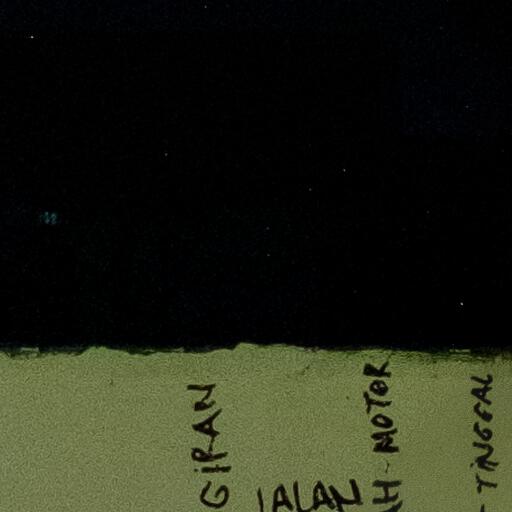 GIRAN
JALAN
AH-MOTOR
TINGGAL